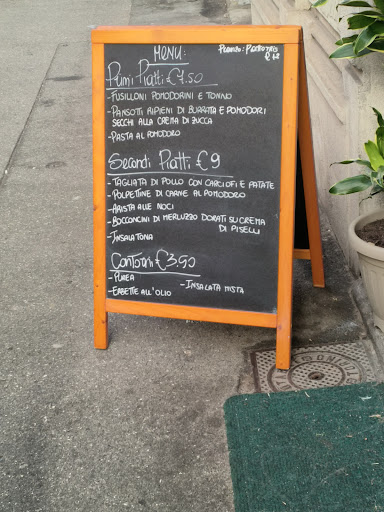 MENU:
Primi Piatti €7.50
- FUSILLONI POMODORINI E TONNO
- PANSOTTI RIPIENI DI BURRATA E POMODORI
SECCHI ALLA CREMA DI ZUCCA
- PASTA AL POMODORO
Secondi Piatti €9
- TAGLIATA DI POLLO CON CARCIOFI E PATATE
- POLPETTINE DI CARNE AL POMODORO
- ARISTA ALLE NOCI
- BOCCONCINI DI MERLUZZO DORATI SU CREMA
DI PISELLI
- INSALATONA
Contorni €3.90
- PUREA
- INSALATA MISTA
- ERBETTE ALL'OLIO